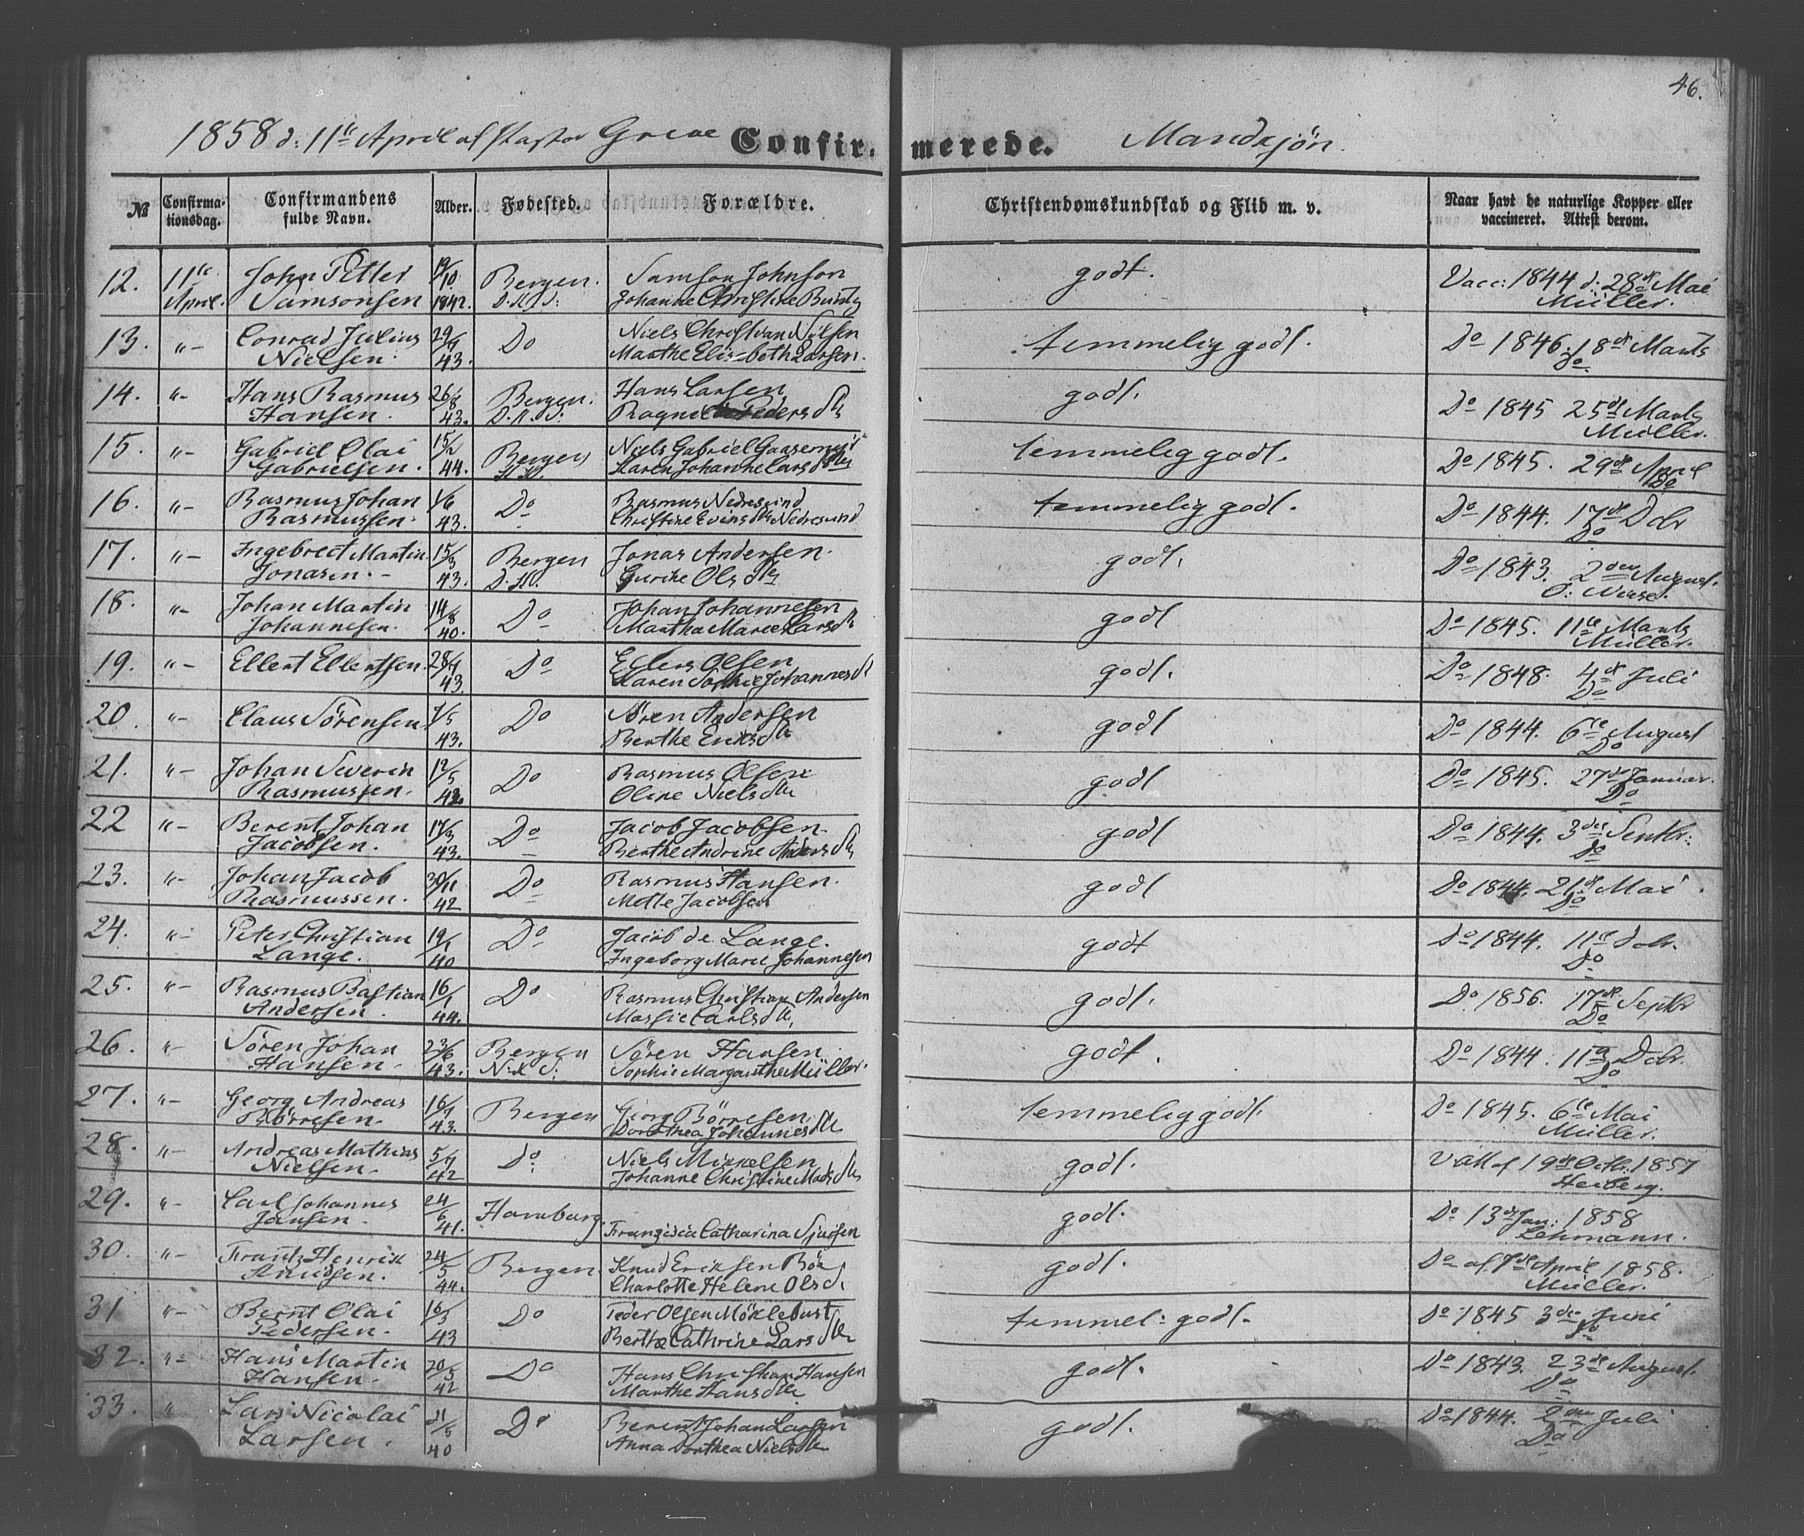 46.
1858 d: 11te April af Pastor Grieve Confirmerede. Mandkjøn.
№ Confirmationsdag. Confirmandens fulde Navn. Alder. Fødested. Forældre. Christendomskundskab og Flid m. v. Naar havt de naturlige Kopper eller vaccineret. Attest derom.
12. 11te John Petter 19/10 Bergen. Samson Johnson godt. Vacc: 1844 d: 28de Mai
April Samsonsen 1842. D.K.S: Johanne Christine Müller.
13. "- Conrad Julius 29/ Do Niels Christian Nilsen temmelig godt. Do 1846. 18de Marts
Nielsen. 43. Marthe Elisabeth Larsen. Do
14. "- Hans Rasmus 26/8 Bergen. Hans Larsen godt. Do 1845 25de Marts
Hansen. 43. D.K.S. Ragnilde Pedersdtr Müller.
15. "- Gabriel Olai 15/2 Bergen Niels Gabriel temmelig godt. Do 1845. 29de April
Gabrielsen. 44. Karen Johanne Larsdtr Do
16. "- Rasmus Johan 1/6 Do Rasmus Nedresund temmelig godt. Do 1844. 17de Decbr
Rasmussen. 43. Christine Evensdtr Nedresund Do
17. "- Ingebrect Martin 15/3 Bergen Jonas Andersen. godt. Do 1843. 2den August.
Jonasen. - 43. D.K. Gurine Olsdtr
18. "- Johan Martin 14/8 Do Johan Johannesen godt Do 1845. 11te Marts
Johannesen. 40. Martha Marie Larsdtr Müller.
19. "- Ellert Ellertsen 28/ Do Ellers Olsen godt. Do 1848. 4de Juli
43. Karen Sophie Johannesdtr Do
20. "- Claus Sörensen 7/5 Do Sören Andersen godt Do 1844. 6te August
43. Berthe Eriksdtr Do
21. "- Johan Severin 12/5 Do Rasmus Olsen godt Do 1845. 27de Januar.
Rasmussen. Oline Nielsdtr Do
22 "- Berent Johan 17/3 Do Jacob Jacobsen. godt Do 1844. 3die Septbr:
Jacobsen. 43. Berthe Andrine Andersdtr Do
23. "- Johan Jacob 30/11 Do Rasmus Hansen. godt Do 1844. 21de Mai.
Rasmussen. 42 Mette Jacobsen Do
24. "- Peter Christian 19/1 Do Jacob de Lange. godt Do 1844. 11te Decbr.
Lange. 40 Ingeborg Marie Johannesen Do
25. "- Rasmus Bastian 16/1 Do Rasmus Christian Andersen godt. Do 1856. 17de Septbr
Andersen. 44. Massie Carlsdtr, Do
26. "- Sören Johan 23/6 Bergen Sören Hansen. godt. Do 1844. 11te Decbr.
Hansen. 43. N.K.S: Sophie Margarethe Müller. Do
27. "- Georg Andreas 16/ Bergen Georg Börresen. temmelig godt. Do 1845. 6te Mai
Börresen. 43 Dorothea Johannesdtr Müller.
28. "- Andreas Mathias 5/ Do Niels Mikkelsen godt. V Att af 19de Octbr. 1857
Nielsen. 42 Johanne Christine Madsdtr Heiberg.
29. "- Carl Johannes 24/6 Hamburg. godt. Do 13de Jan: 1858
Jansen. 41. Franzisca Catharina Sjursen Lehmann.
30. "- Frantz Henrik 24/5 Bergen. Knud Eriksen Böe godt. Do af April 1858.
Knudsen. 44. Charlotte Helene Olsdtr Müller.
31 "- Bernt Olai 16/3 Do Peder Olsen Möklebust temmel: godt. Do 1845 3die Juni
Pedersen. 43 Berthe Cathrine Larsdtr Do
32. "- Hans Martin 20/5 Do Hans Christian Hansen godt. Do 1843. 23de August.
Hansen. 42 Marthe Hansdtr Do
33. " Lars Nicolai 21/5 Do Berent Johan Larsen godt. Do 1844. 2den Juli
Larsen. 40 Anna Dorthea Nielsdtr Do